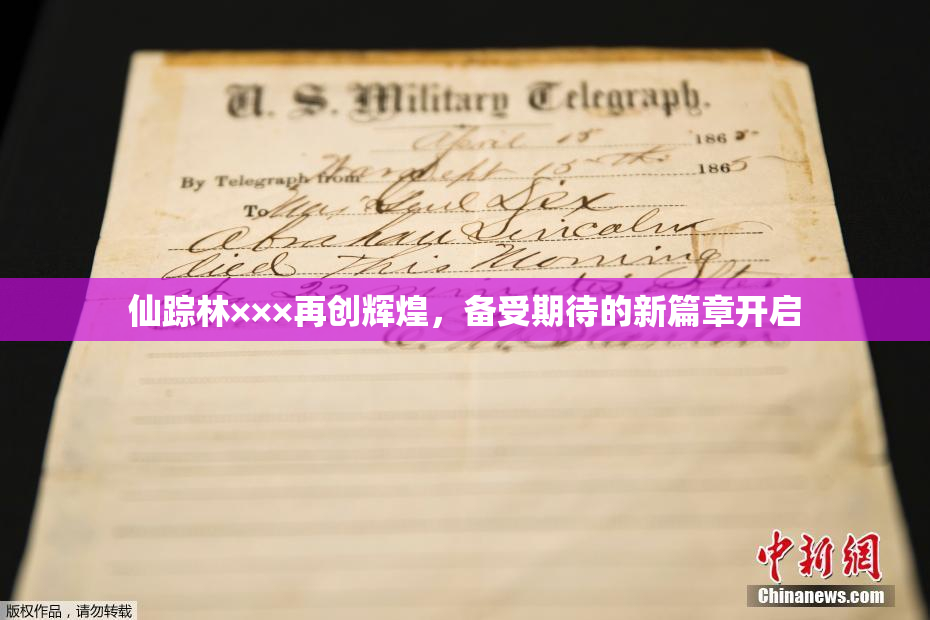 U. S. Military Telegraph.
April 15 1865
By Telegraph from War Dept 15th 1865
To Maj Genl Dix
Abraham Lincoln
died This Morning
at 22 minutes after
仙踪林×××再创辉煌，备受期待的新篇章开启
中新网
Chinanews.com
版权作品，请勿转载